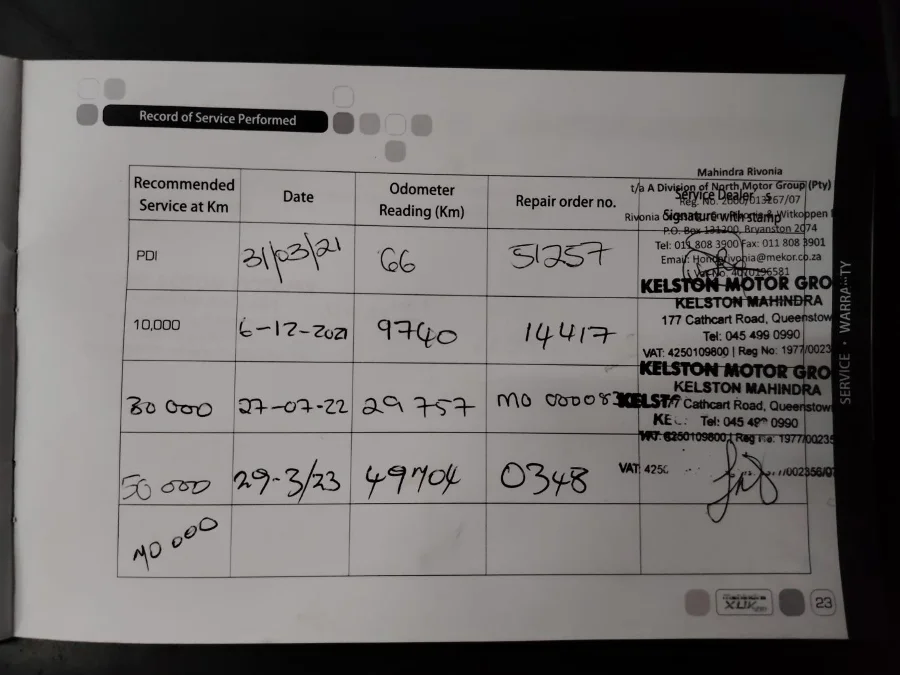 Record of Service Performed
Recommended Service at Km
Date
Odometer Reading (Km)
Repair order no.
Service Dealer's
Signature with stamp
Mahindra Rivonia
t/a A Division of North Motor Group (Pty)
Reg. No. 2000/013267/07
Rivonia & Witkoppen
P.O. Box 131200, Bryanston 2074
Tel: 011 808 3900 Fax: 011 808 3901
Email: Hondarivonia@mekor.co.za
PDI 31/03/21 66 51257
KELSTON MOTOR GRO
KELSTON MAHINDRA
177 Cathcart Road, Queenstow
Tel: 045 499 0990
VAT: 4250109800 | Reg No: 1977/0023
10,000 6-12-2021 9740 14417
KELSTON MOTOR GRO
KELSTON MAHINDRA
Cathcart Road, Queenstow
Tel: 045 0990
30 000 27-07-22 29 757
50 000 29-3/23 49704 0348
VAT: 425
70 000
SERVICE • WARRANTY
23